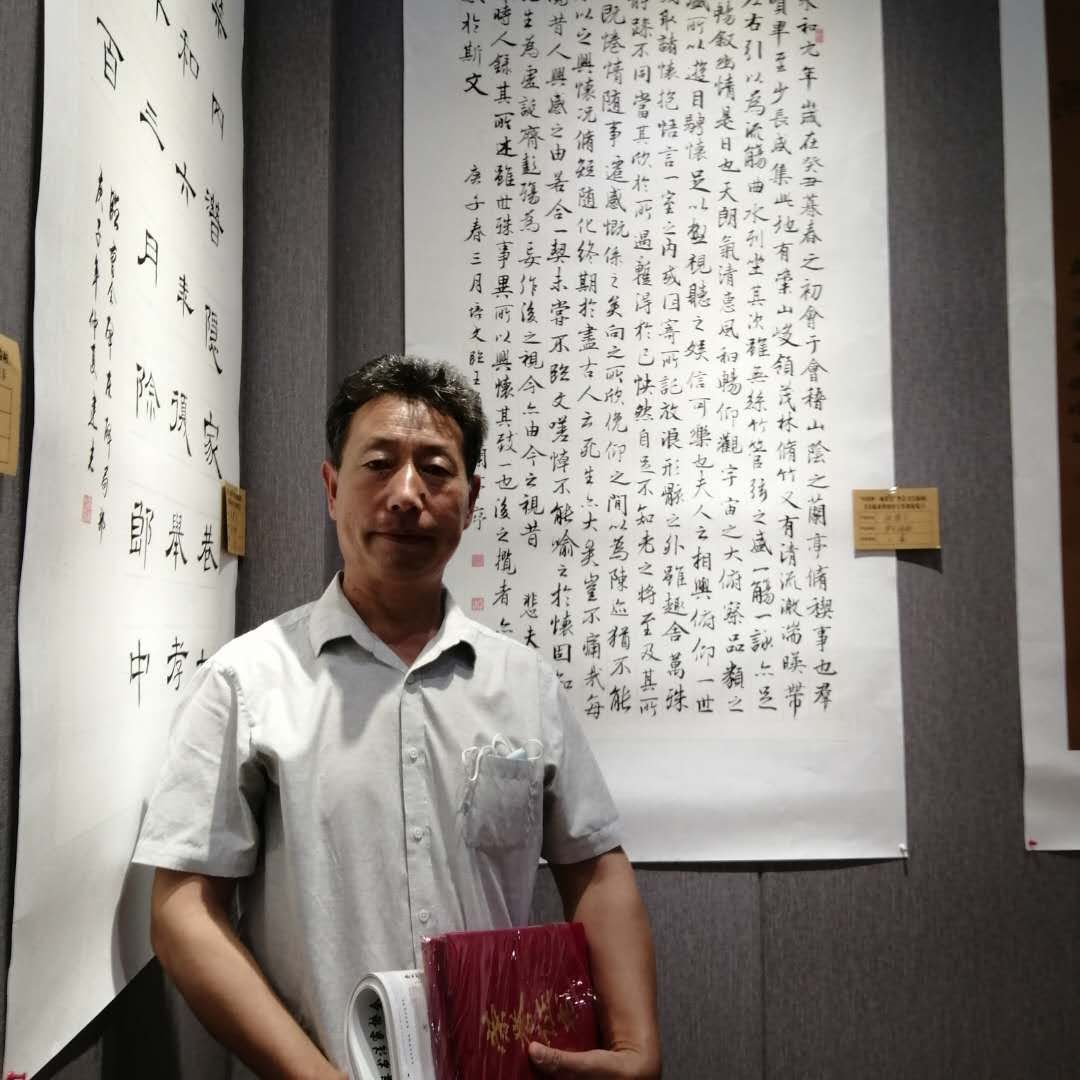 永和九年歲在癸丑暮春之初會于會稽山陰之蘭亭脩禊事也羣
賢畢至少長咸集此地有崇山峻領茂林脩竹又有清流激湍暎帶
左右引以為流觴曲水列坐其次雖無絲竹管弦之盛一觴一詠亦足
暢叙幽情是日也天朗氣清惠風和暢仰觀宇宙之大俯察品類之
盛所以遊目騁懷足以極視聽之娛信可樂也夫人之相與俯仰一世
或取諸懷抱悟言一室之內或因寄所託放浪形骸之外雖趣舍萬殊
靜躁不同當其欣於所遇暫得於己快然自足不知老之將至及其所
既惓情隨事遷感慨係之矣向之所欣俛仰之間以為陳迹猶不能
以之興懷況脩短隨化終期於盡古人云死生亦大矣豈不痛哉每
攬昔人興感之由若合一契未嘗不臨文嗟悼不能喻之於懷固知
生為虛誕齊彭殤為妄作後之視今亦由今之視昔 悲夫
時人錄其所述雖世殊事異所以興懷其致一也後之攬者亦
於斯文 庚子春三月培文臨王 蘭亭序
內潛隱家巷
和六 表彌舉孝
三月除郎中
百